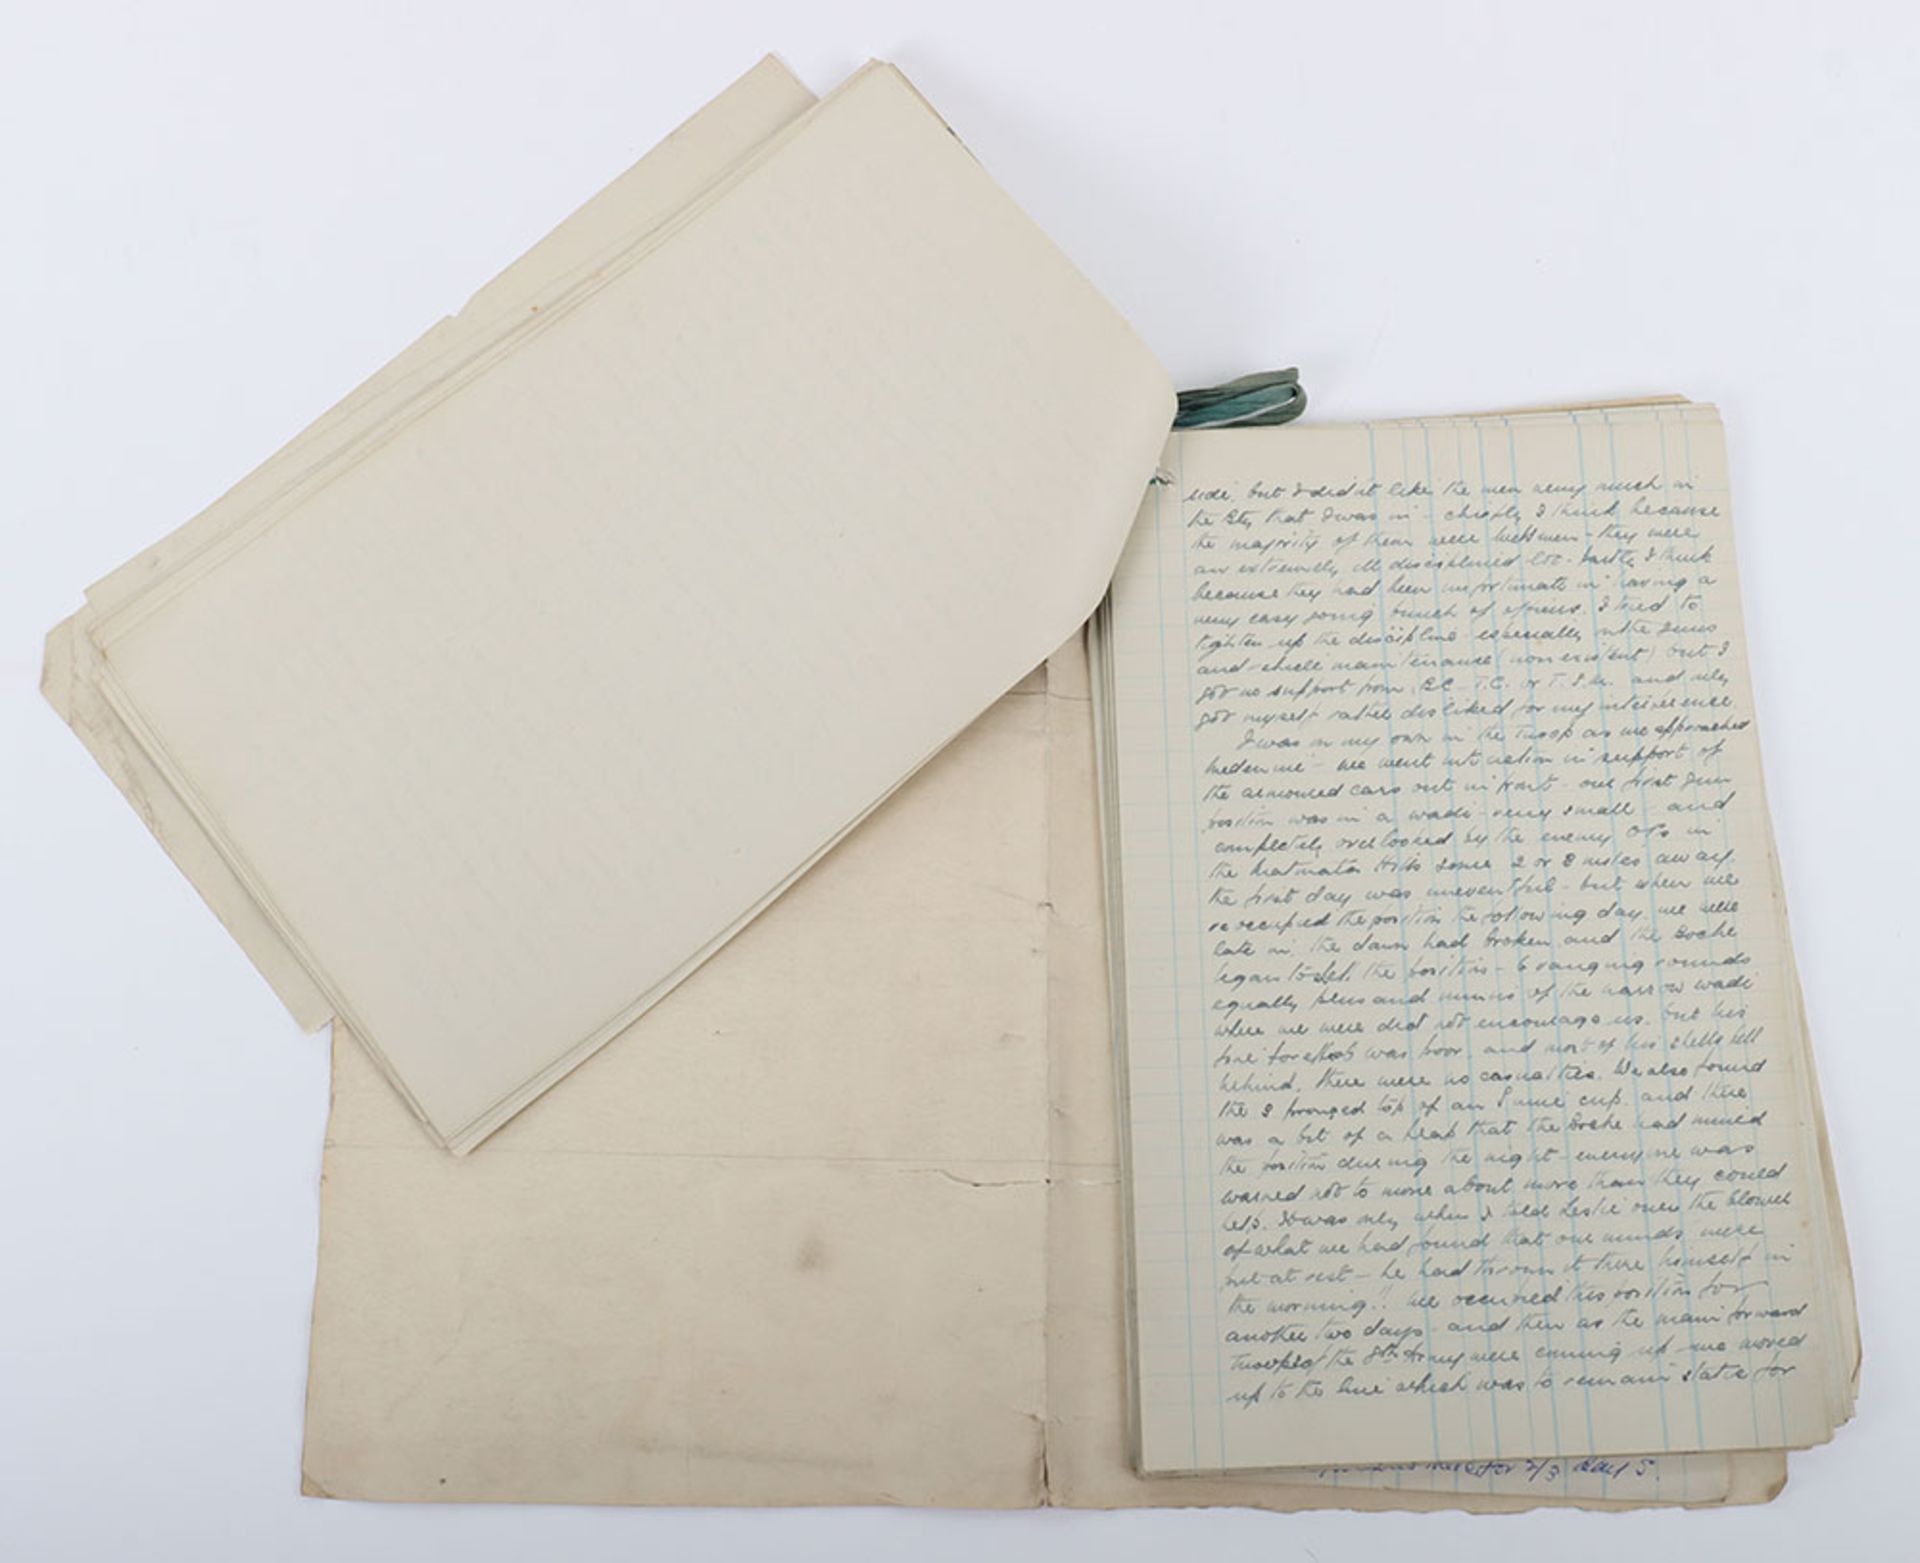 side. but I didn't like the men very much in
the Bty that I was in - chiefly I think because
the majority of them were - they were
an extremely ill disciplined lot - partly I think
because they had been unfortunate in having a
very easy going bunch of officers. I tried to
tighten up the discipline especially on the guns
and vehicle maintenance (non existent) but I
got no support from B.C. T.C. or T.S.M. and only
got myself rather disliked for my interference.
I was on my own in the Troop as we approached
Medenine - we went into action in support of
the armoured cars out in front - our first gun
position was in a wadi - very small - and
completely overlooked by the enemy OPs in
the Matmata Hills some 2 or 3 miles away.
the first day was uneventful - but when we
reoccupied the position the following day we were
late in, the dawn had broken and the Boche
began to shell the position - 6 ranging rounds
equally plus and minus of the narrow wadi
where we were did not encourage us. but his
fire for effect was poor. and most of his shells fell
behind. there were no casualties. We also found
the 3 pronged top of an S mine cup. and there
was a bit of a flap that the Boche had mined
the position during the night - everyone was
warned not to move about more than they could
help. It was only when I told Leslie over the blower
of what we had found that our minds were
put at rest - he had thrown it there himself in
the morning!! We occupied this position for
another two days - and then as the main forward
troops of the 8th Army were coming up we moved
up to the line which was to remain static for
for 2/3 days.